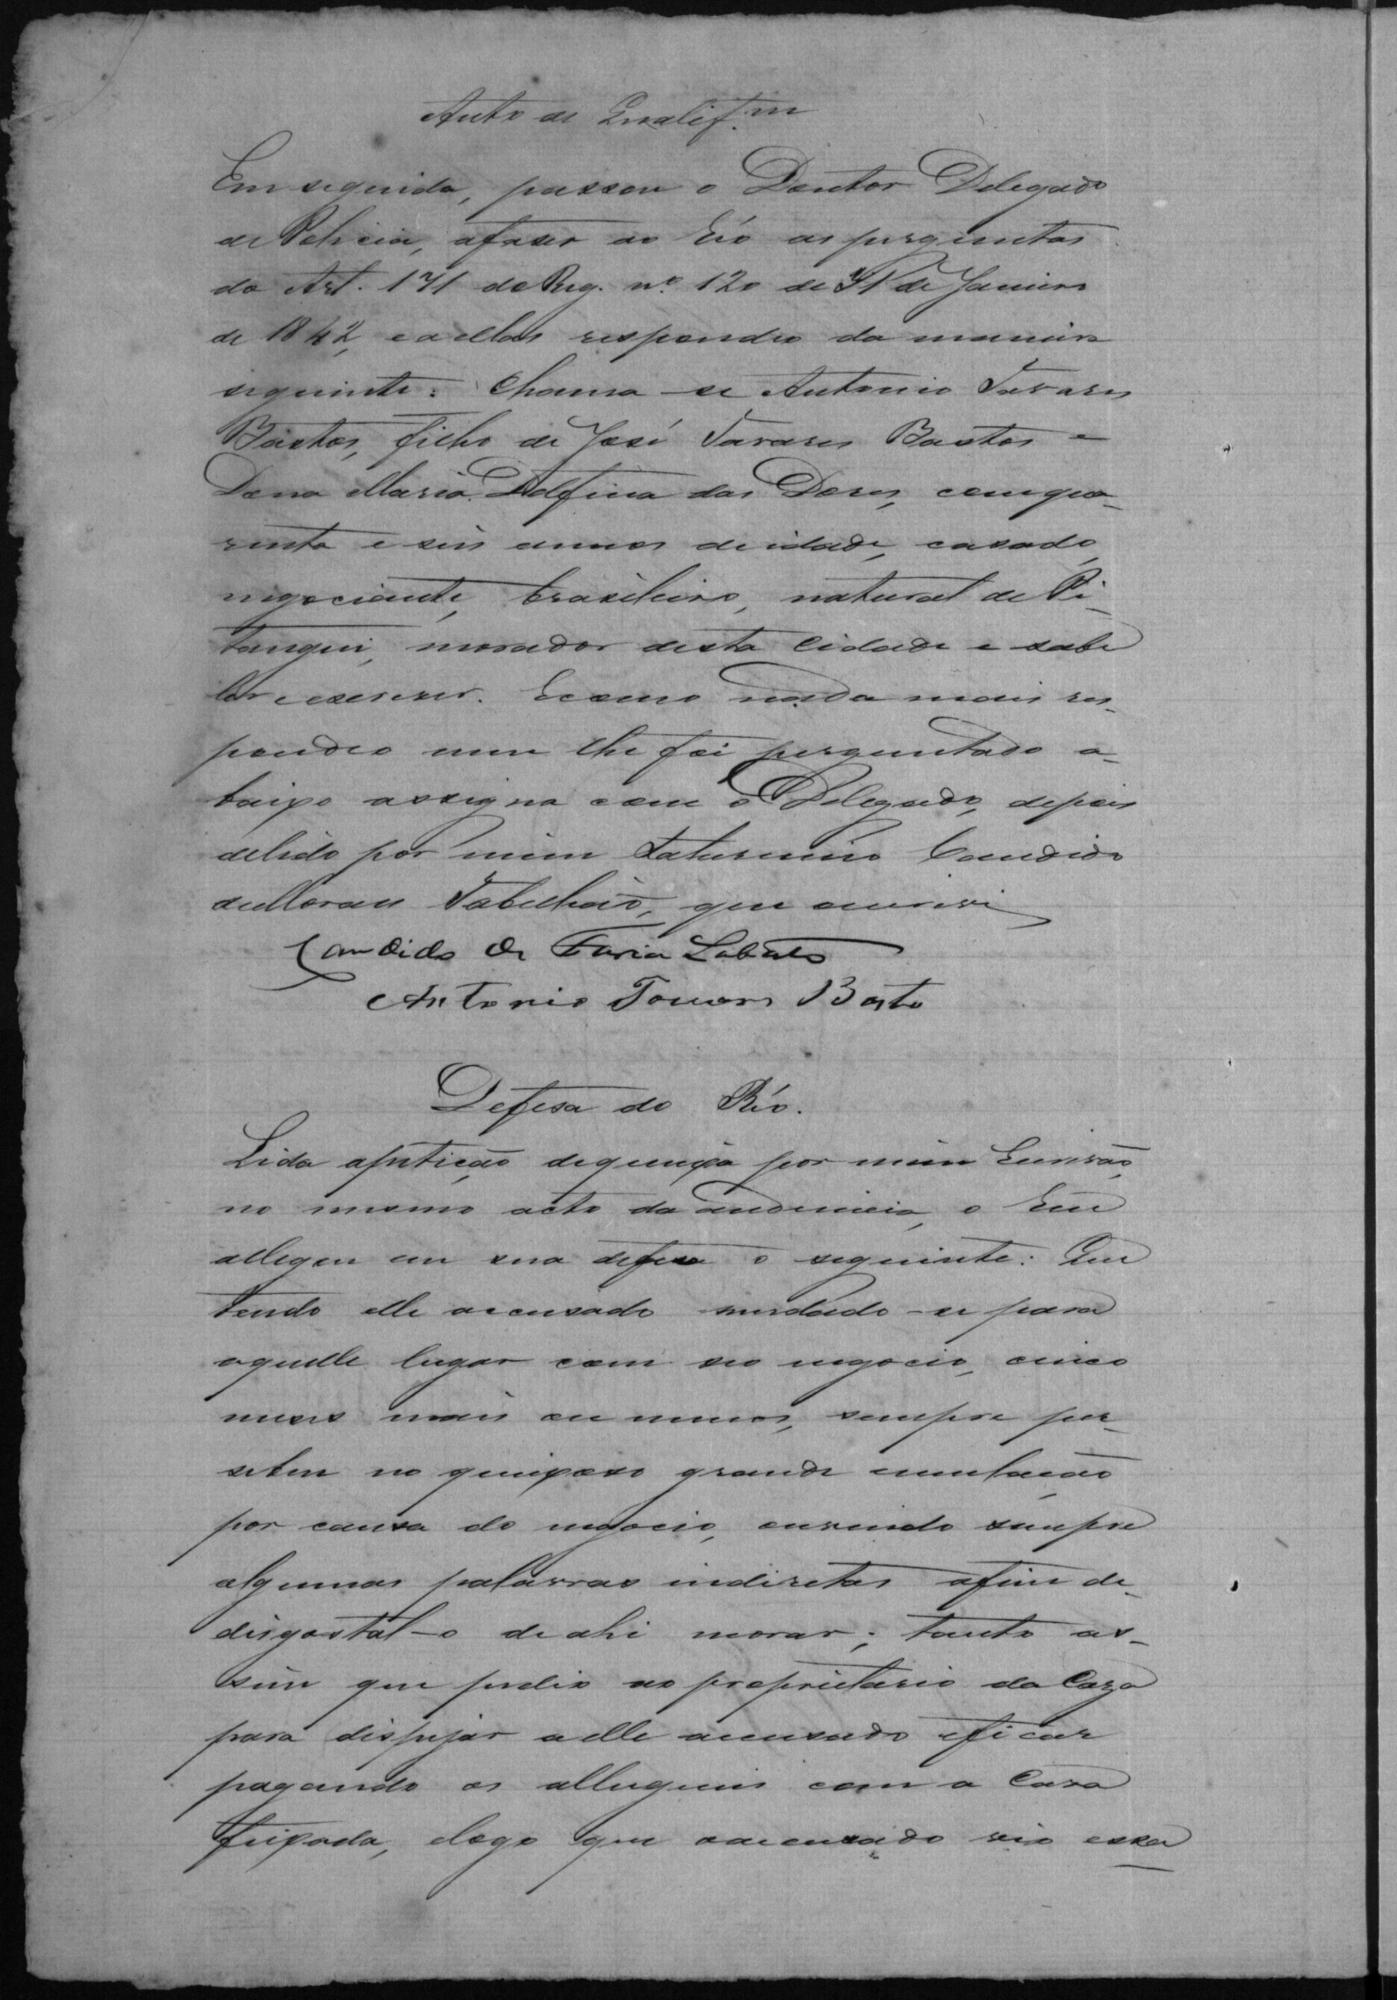 Auto de Qualif.m
Em seguida, passou o Doutor Delegado
de Policia, afaser ao Réo as perguntas
do Art. 171 do Reg. nº 120 de 31 de Janeiro
de 1842, e a ellas respondeo da maneira
seguinte: Chama-se Antonio Tavares
Bastos, filho de José Tavares Bastos e
Dona Maria Delfina das Dores, com qua-
renta e seis annos de idade, casado,
negociante, brasileiro, natural de Pi-
tangui, morador desta Cidade e sabe
ler e escrever. E como nada mais res-
pondeo nem lhe foi perguntado a-
baixo assigna com o Delegado, depois
de lido por mim Saturnino Candido
de Moraes Tabelião, que escrevi
Candido de Faria Lobato
Antonio Tavares Basto
Defesa do Réo.
Lida apetição de queixa por mim Escrivão,
no mesmo acto da audiencia, o Reu
allegou em sua defesa o seguinte: Que
tendo elle accusado mudado-se para
aquelle lugar com seo negocio, cinco
meses mais ou menos, sempre per-
sebeu no queixoso grande emulação
por causa do negocio, ouvindo sempre
algumas palavras indiretas afim de
disgostal-o de ahi morar; tanto as-
sim que pedio ao proprietario da Caza
para dispejar a elle accusado eficar
pagando os allugueis com a Casa
feixada, elogo que o accusado vio essa